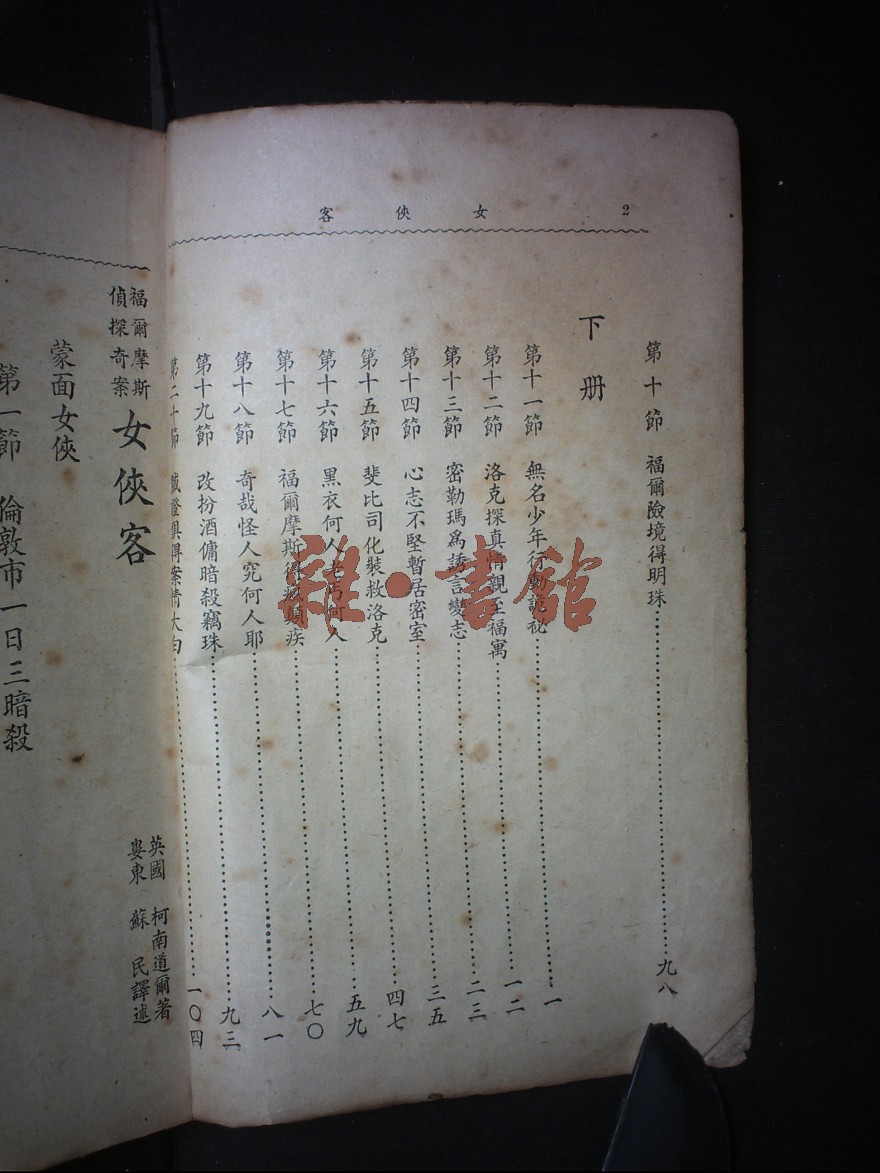 女俠客 2
第十節 福爾險境得明珠……九八
下册
第十一節 無名少年行動詭秘……一
第十二節 洛克探真情親至福寓……一二
第十三節 密勒瑪爲誘言變志……二三
第十四節 心志不堅暫居密室……三五
第十五節 斐比司化裝救洛克……四七
第十六節 黑衣何人老丐何人……五九
第十七節 福爾摩斯得瘋顛疾……七〇
第十八節 奇哉怪人究何人耶……八一
第十九節 改扮酒傭暗殺竊珠……九三
第二十節 贓證俱得案情大白……一〇四
福爾摩斯
偵探奇案
女俠客
英國 柯南道爾著
婁東 蘇民譯述
蒙面女俠
第一節 倫敦市一日三暗殺
雜·書館